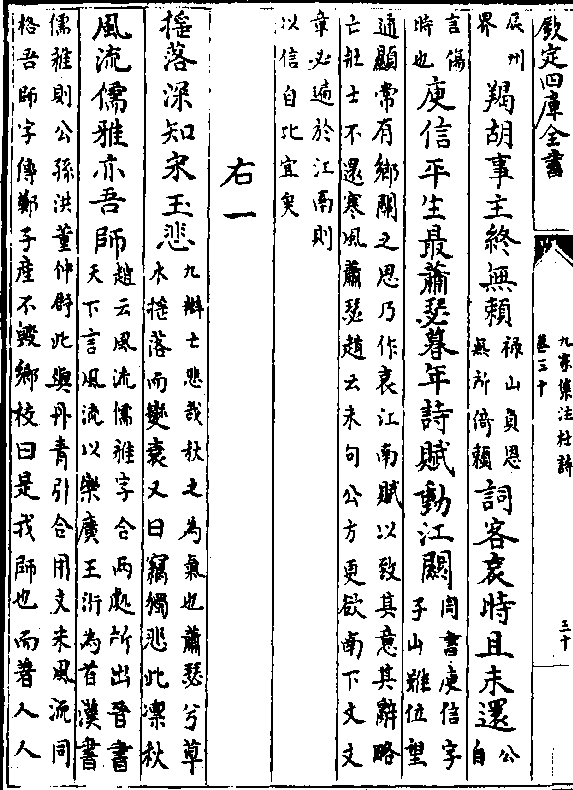 欽定四庫全書
九家集注杜詩
卷三十
三十
辰州
界
羯胡事主終無賴
祿山負恩
無所倚賴
詞客哀時且未還
公
自
言傷
時也
庾信平生最蕭瑟暮年詩賦動江關
周書庾信字
子山雖位望
通顯常有鄉關之思乃作哀江南賦以致其意其辭略
亡壯士不還寒風蕭瑟趙云末句公方更欲南下文文
章必適於江南則
以信自比宜矣
右一
搖落深知宋玉悲
九辯云悲哉秋之為氣也蕭瑟兮草
木搖落而變衰又曰竊獨悲此凜秋
風流儒雅亦吾師
趙云風流儒雅字合兩處所出晉書
天下言風流以樂廣王衍為首漢書
儒雅則公孫洪董仲舒此與丹青引合用文未風流同
格吾師字傳鄭子產不毀鄉校曰是我師也而著人人